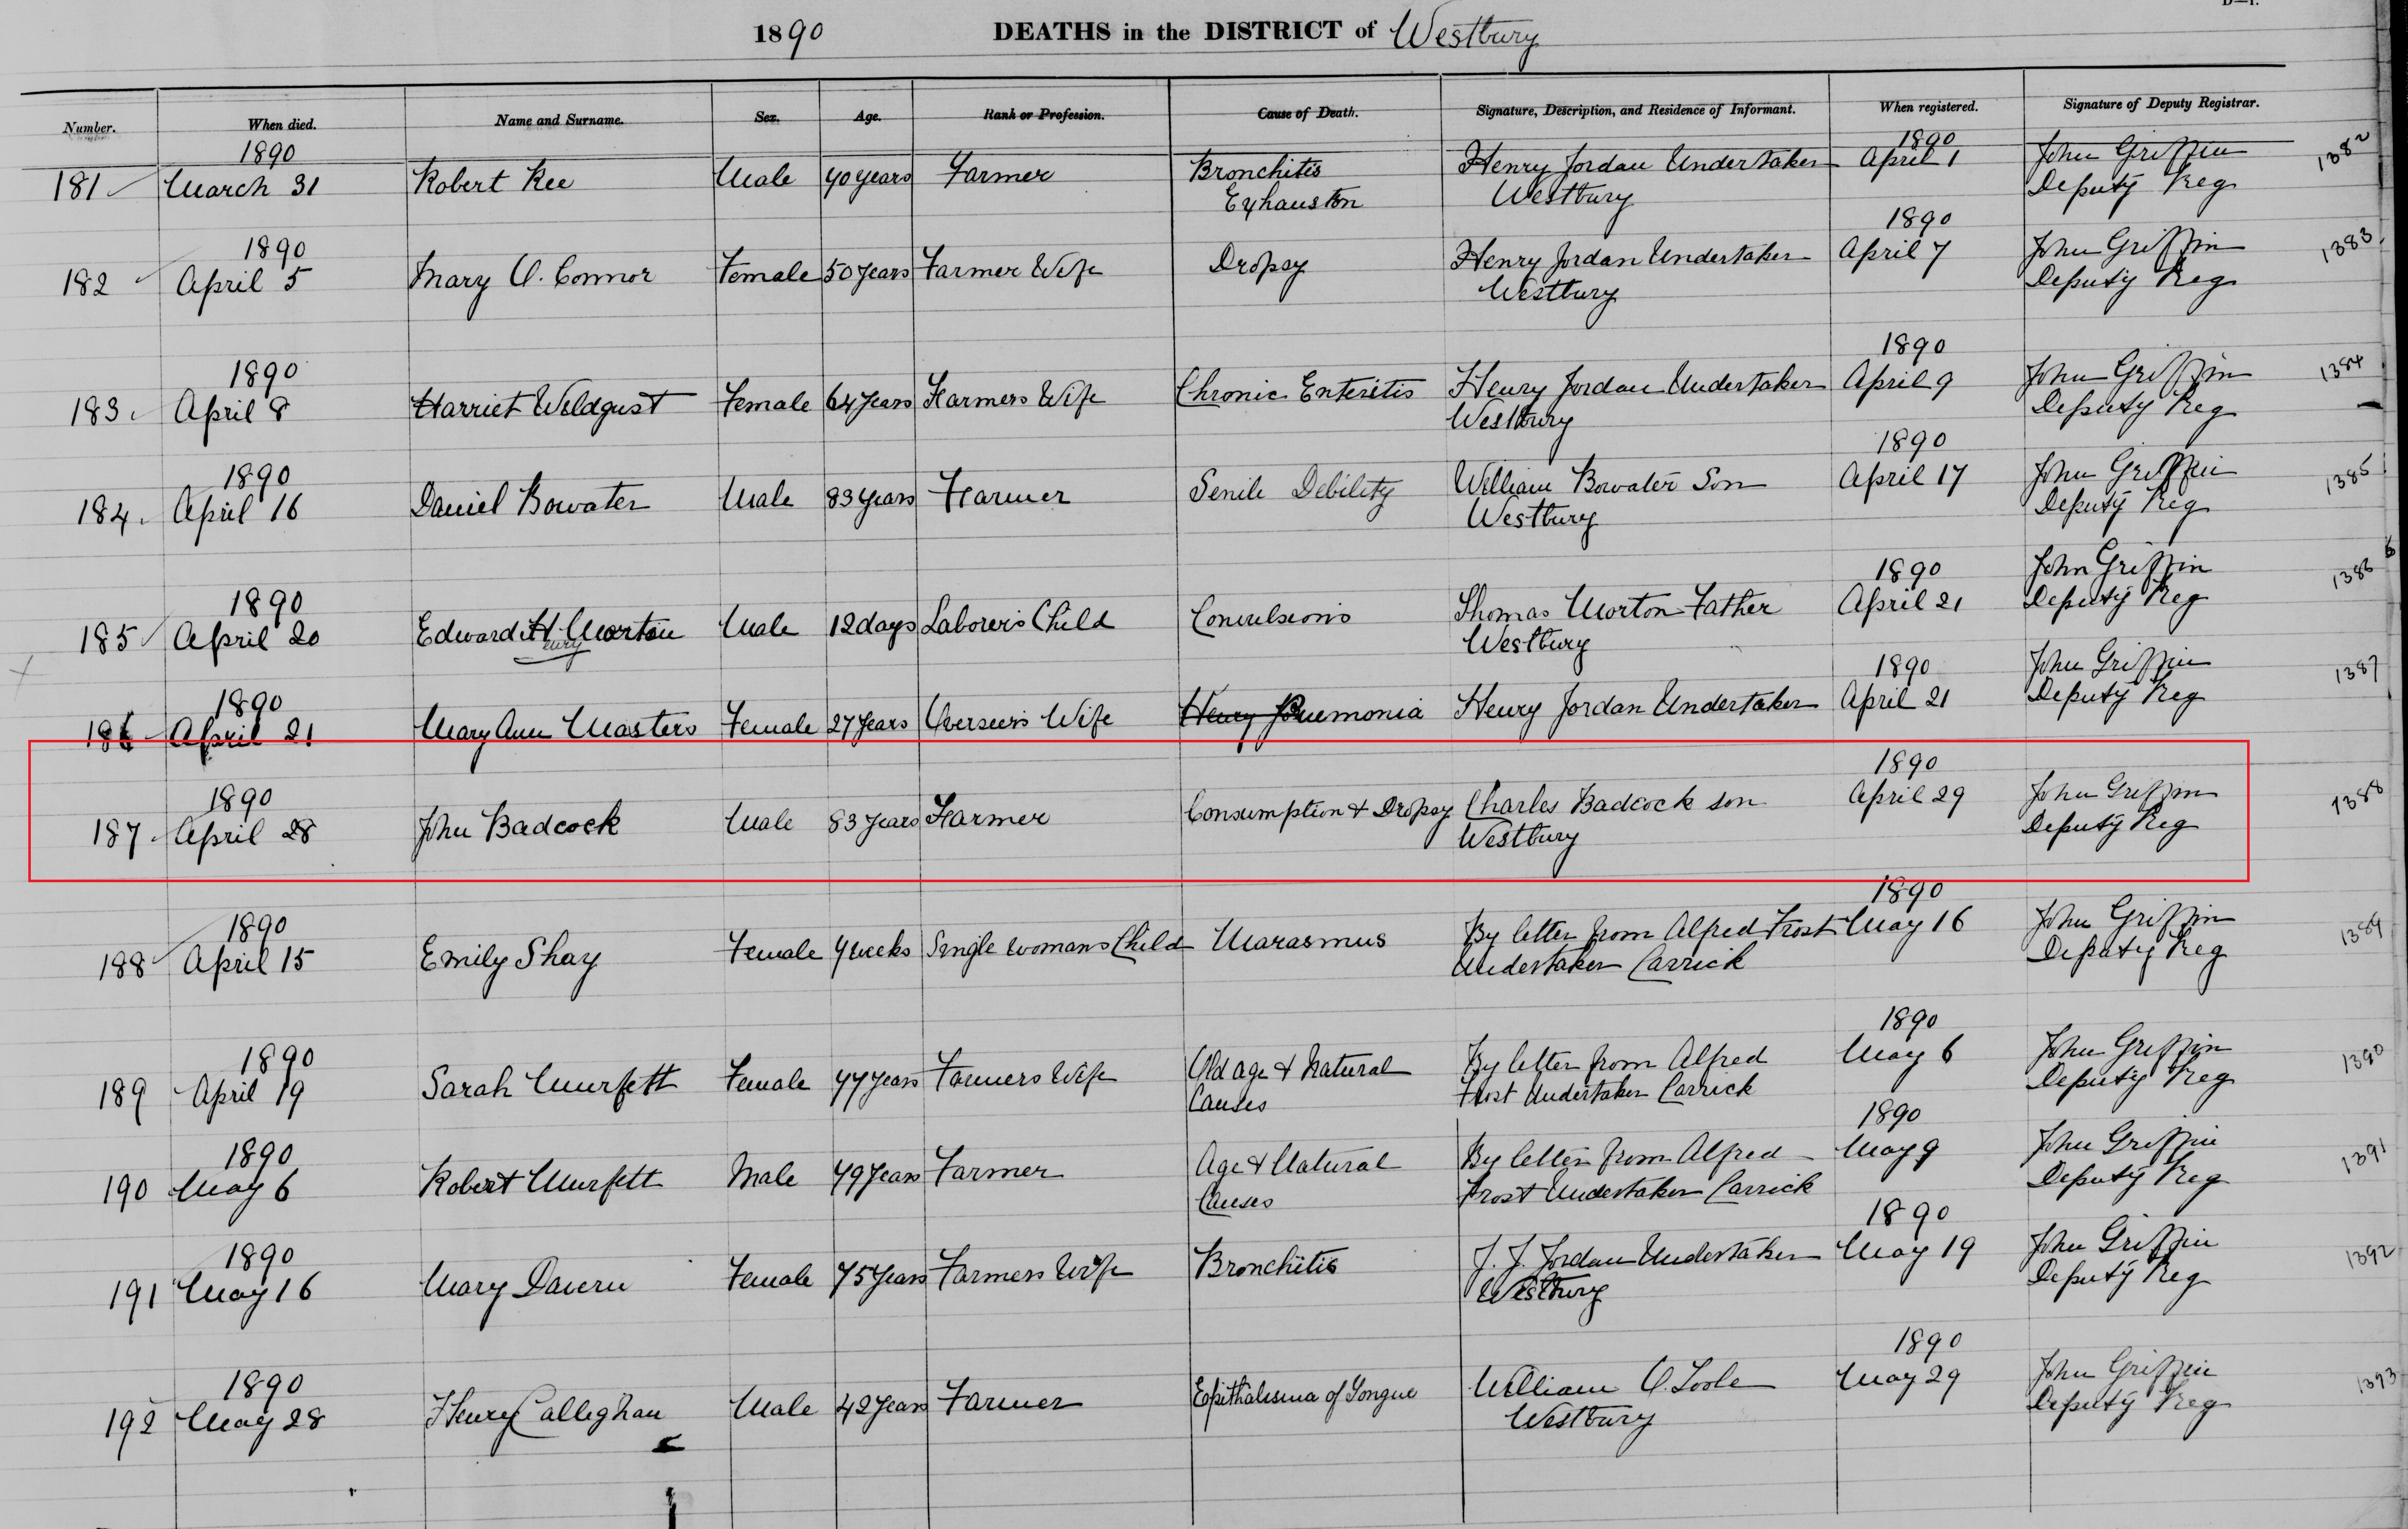 1890 DEATHS in the DISTRICT of Westbury
Number. When died. Name and Surname. Sex. Age. Rank or Profession. Cause of Death. Signature, Description, and Residence of Informant. When registered. Signature of Deputy Registrar.
1890 1890
181 March 31 Robert Kee Male 70 years Farmer Bronchitis Henry Jordan Undertaker April 1 John Griffin 1382
Exhauston Westbury Deputy Reg
1890 1890
182 April 5 Mary O. Connor Female 50 years Farmer Wife Dropsy Henry Jordan Undertaker April 7 John Griffin 1383
Westbury Deputy Reg
1890 1890
183 April 8 Harriet Wildgust Female 64 years Farmers Wife Chronic Enteritis Henry Jordan Undertaker April 9 John Griffin 1384
Westbury Deputy Reg
1890 1890
184 April 16 Daniel Bowater Male 83 years Farmer Senile Debility William Bowater Son April 17 John Griffin 1385
Westbury Deputy Reg
1890 1890
185 April 20 Edward H Morton Male 12 days Laborer's Child Convulsions Thomas Morton Father April 21 John Griffin 1386
enry Westbury Deputy Reg
1890 1890
186 April 21 Mary Ann Masters Female 27 years Overseers Wife Henry Pneumonia Henry Jordan Undertaker April 21 John Griffin 1387
Deputy Reg
1890 1890
187 April 28 John Badcock Male 83 years Farmer Consumption & Dropsy Charles Badcock son April 29 John Griffin 1388
Westbury Deputy Reg
1890 1890
188 April 15 Emily Shay Female 7 weeks Single womans Child Marasmus By letter from Alfred Frost May 16 John Griffin 1389
Undertaker Carrick Deputy Reg
1890 1890
189 April 19 Sarah Murfett Female 77 years Farmers Wife Old age & Natural By letter from Alfred May 6 John Griffin 1390
Causes Frost Undertaker Carrick Deputy Reg
1890 1890
190 May 6 Robert Murfett Male 79 years Farmer Age & Natural By letter from Alfred May 9 John Griffin 1391
Causes Frost Undertaker Carrick Deputy Reg
1890 1890
191 May 16 Mary Davern Female 75 years Farmers Wife Bronchitis J. J. Jordan Undertaker May 19 John Griffin 1392
Westbury Deputy Reg
1890 1890
192 May 28 Henry Calleghan Male 42 years Farmer of Tongue William O. Toole May 29 John Griffin 1393
Westbury Deputy Reg